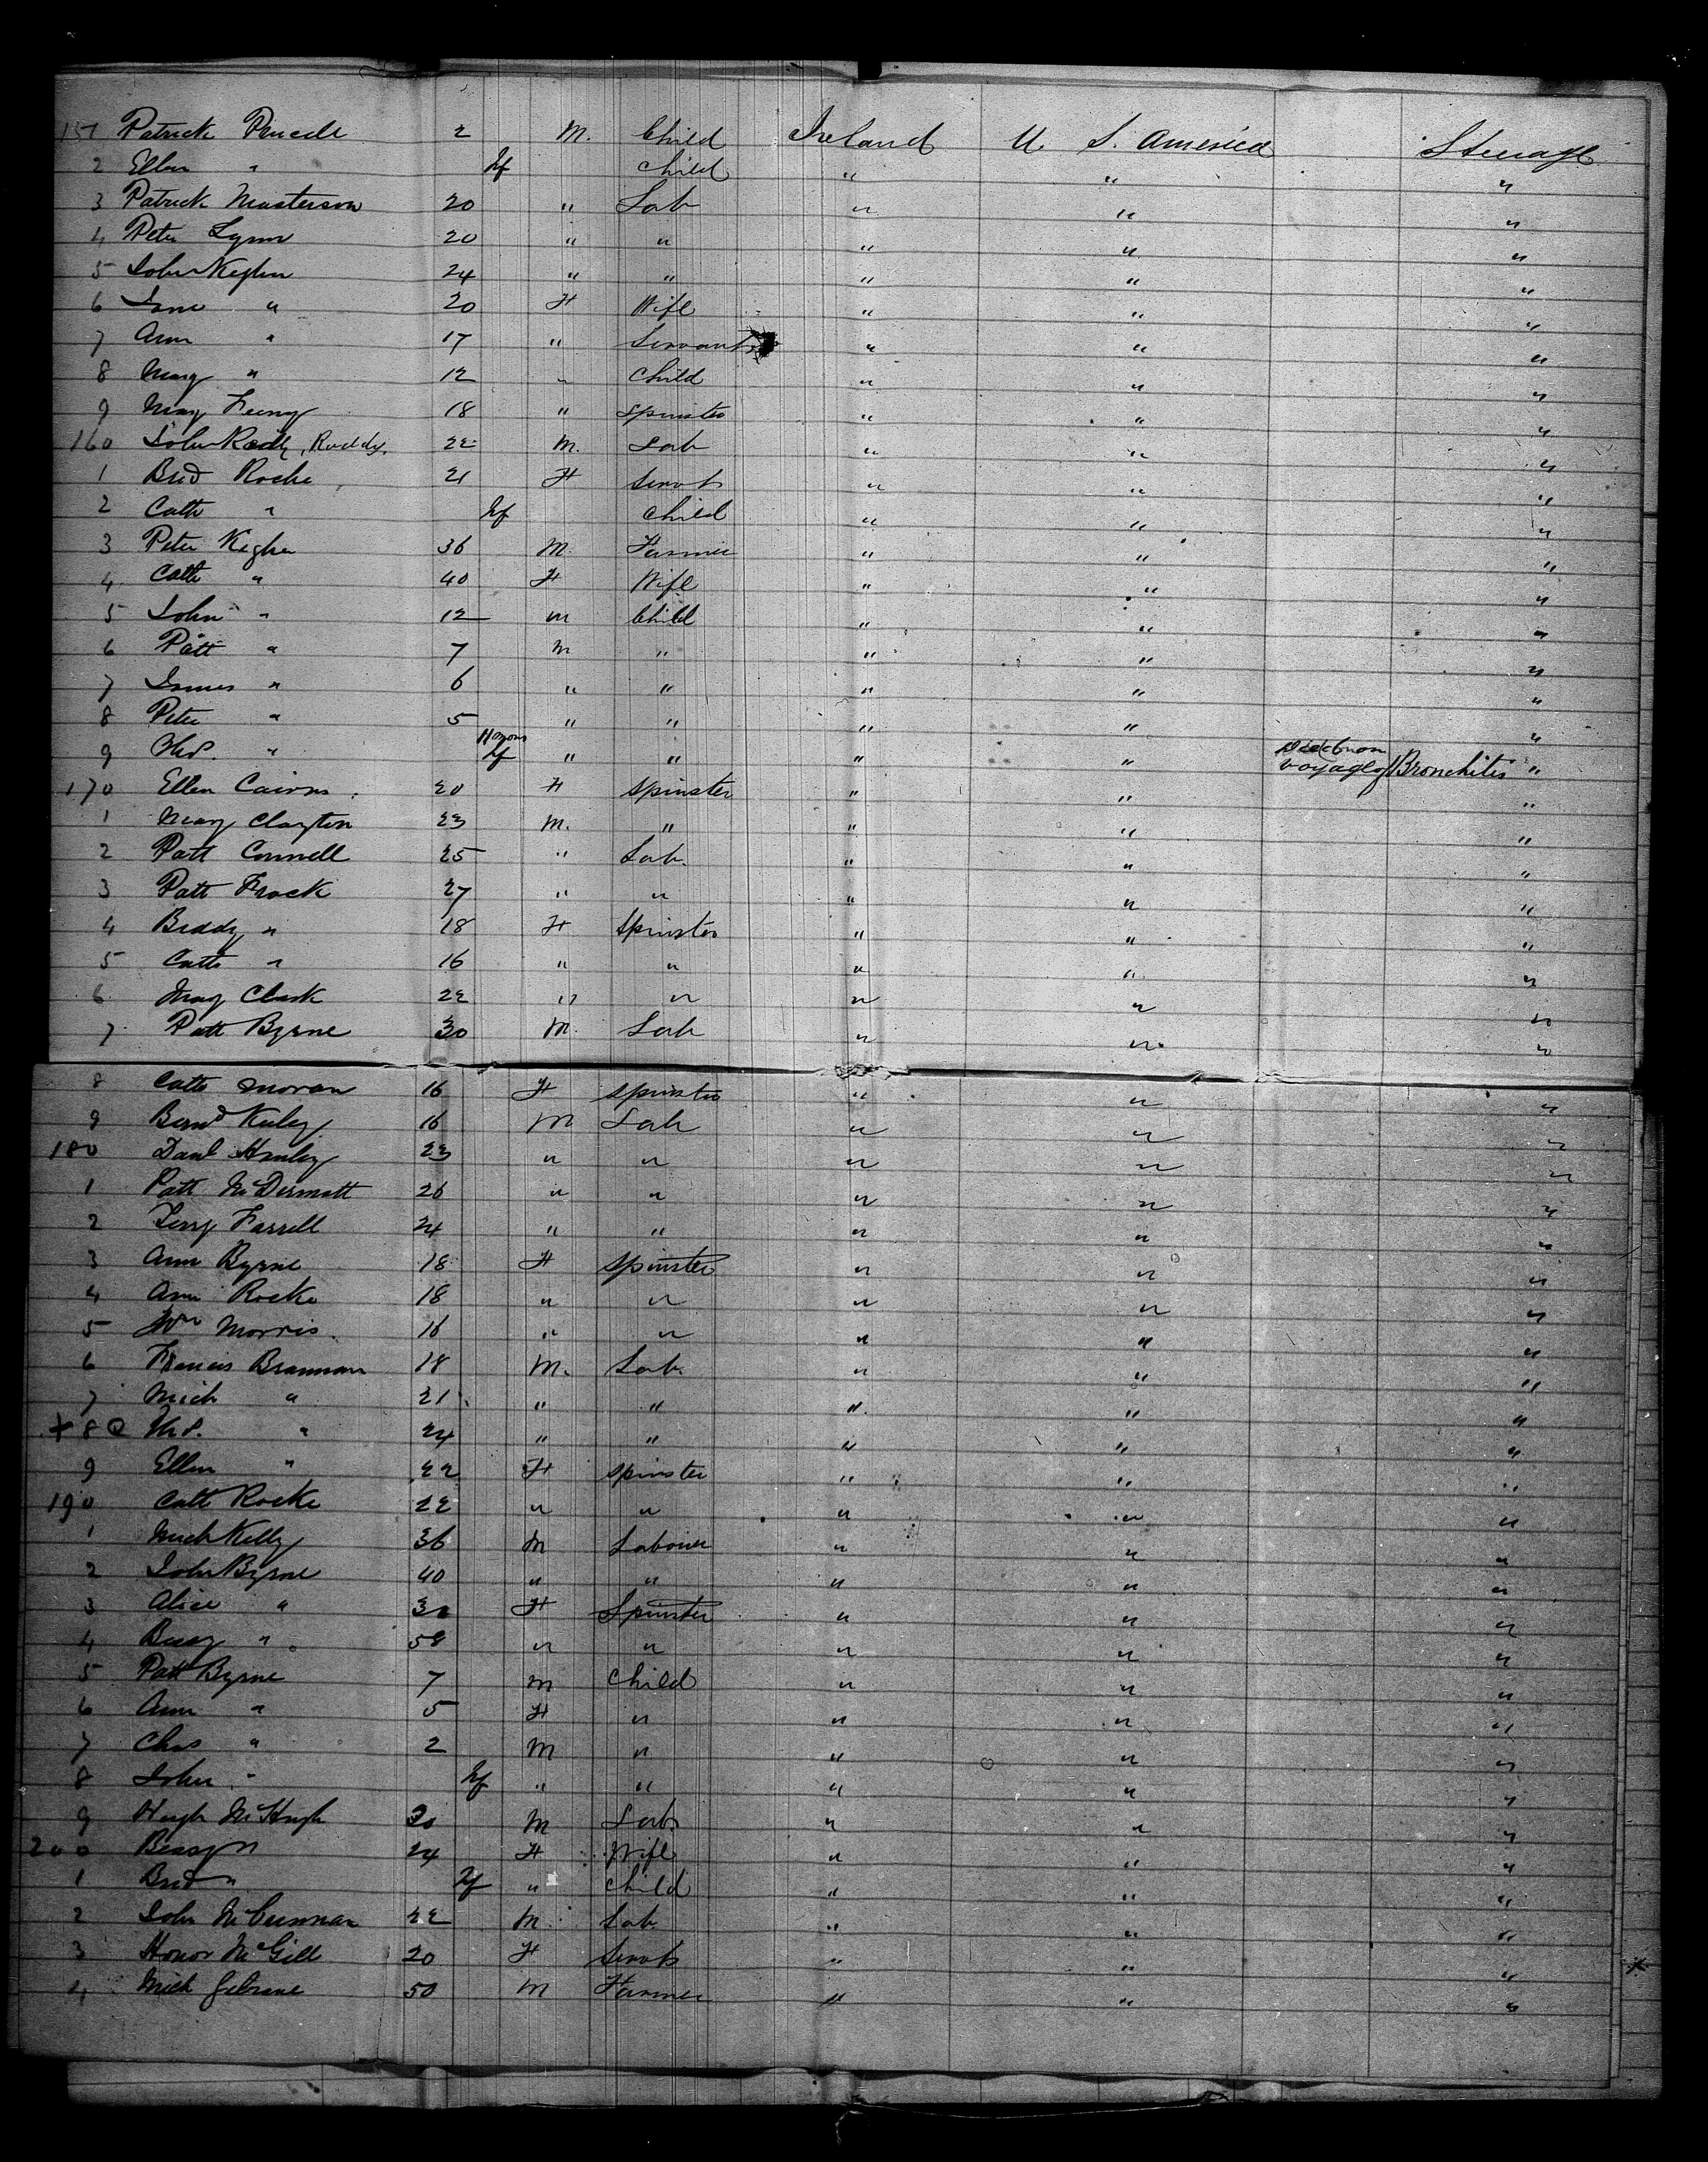 151 Patrick Pencell 2 M. Child Ireland U. S. America Steerage
2 Ellen " Inf Child " " "
3 Patrick Masterson 20 " Lab " " "
4 Peter Lynn 20 " " " " "
5 John Keghn 24 " " " " "
6 Jane " 20 F Wife " " "
7 Ann " 17 " Servant " " "
8 Mary " 12 " Child " " "
9 Mary Feeny 18 " Spinster " " "
160 John Rody, Ruddy. 22 M. Lab " " "
1 Brid Roche 21 F Servt " " "
2 Cath " Inf Child " " "
3 Peter Kegher 36 M. Farmer " " "
4 Cath " 40 F Wife " " "
5 John " 12 m Child " " "
6 Patt " 7 m " " " "
7 James " 6 " " " " "
8 Peter " 5 " " " " "
9 Thos. " 11 mons Inf " " " " Died on voyage of Bronchitis "
170 Ellen Cairns 20 F Spinster " " "
1 Mary Clayton 23 M. " " " "
2 Patt Connell 25 " Lab. " " "
3 Patt Frock 27 " " " " "
4 Biddy " 18 F Spinster " " "
5 Cath " 16 " " " " "
6 Mary Clark 22 " " " " "
7 Patt Byrne 30 M. Lab " " "
8 Cath Moran 16 F Spinster " " "
9 Bernd Kieley 16 M Lab " " "
180 Danl Hanley 23 " " " " "
1 Patt McDermott 26 " " " " "
2 Terry Farrell 24 " " " " "
3 Ann Byrne 18 F Spinster " " "
4 Ann Rocke 18 " " " " "
5 Wm Morris 16 " " " " "
6 Francis Brannan 18 M. Lab " " "
7 Mich " 21 " " " " "
+ 8 Thos. " 24 " " " " "
9 Ellen " 22 F Spinster " " "
190 Cath Rocke 22 " " " " "
1 Mich Kelly 36 M Labourer " " "
2 John Byrne 40 " " " " "
3 Alice " F Spinster " " "
4 " 58 " " " " "
5 Patt Byrne 7 M Child " " "
6 Ann " 5 F " " " "
7 Chas " 2 M " " " "
8 John " Inf " " " " "
9 Hugh McHugh 30 M Lab " " "
200 Bessy " 24 F Wife " " "
1 Brid " Inf " Child " " "
2 John McCunnan 22 M. Lab " " "
3 Honor McGill 20 F Servt " " "
4 Mich Gilrane 50 M Farmer " " "